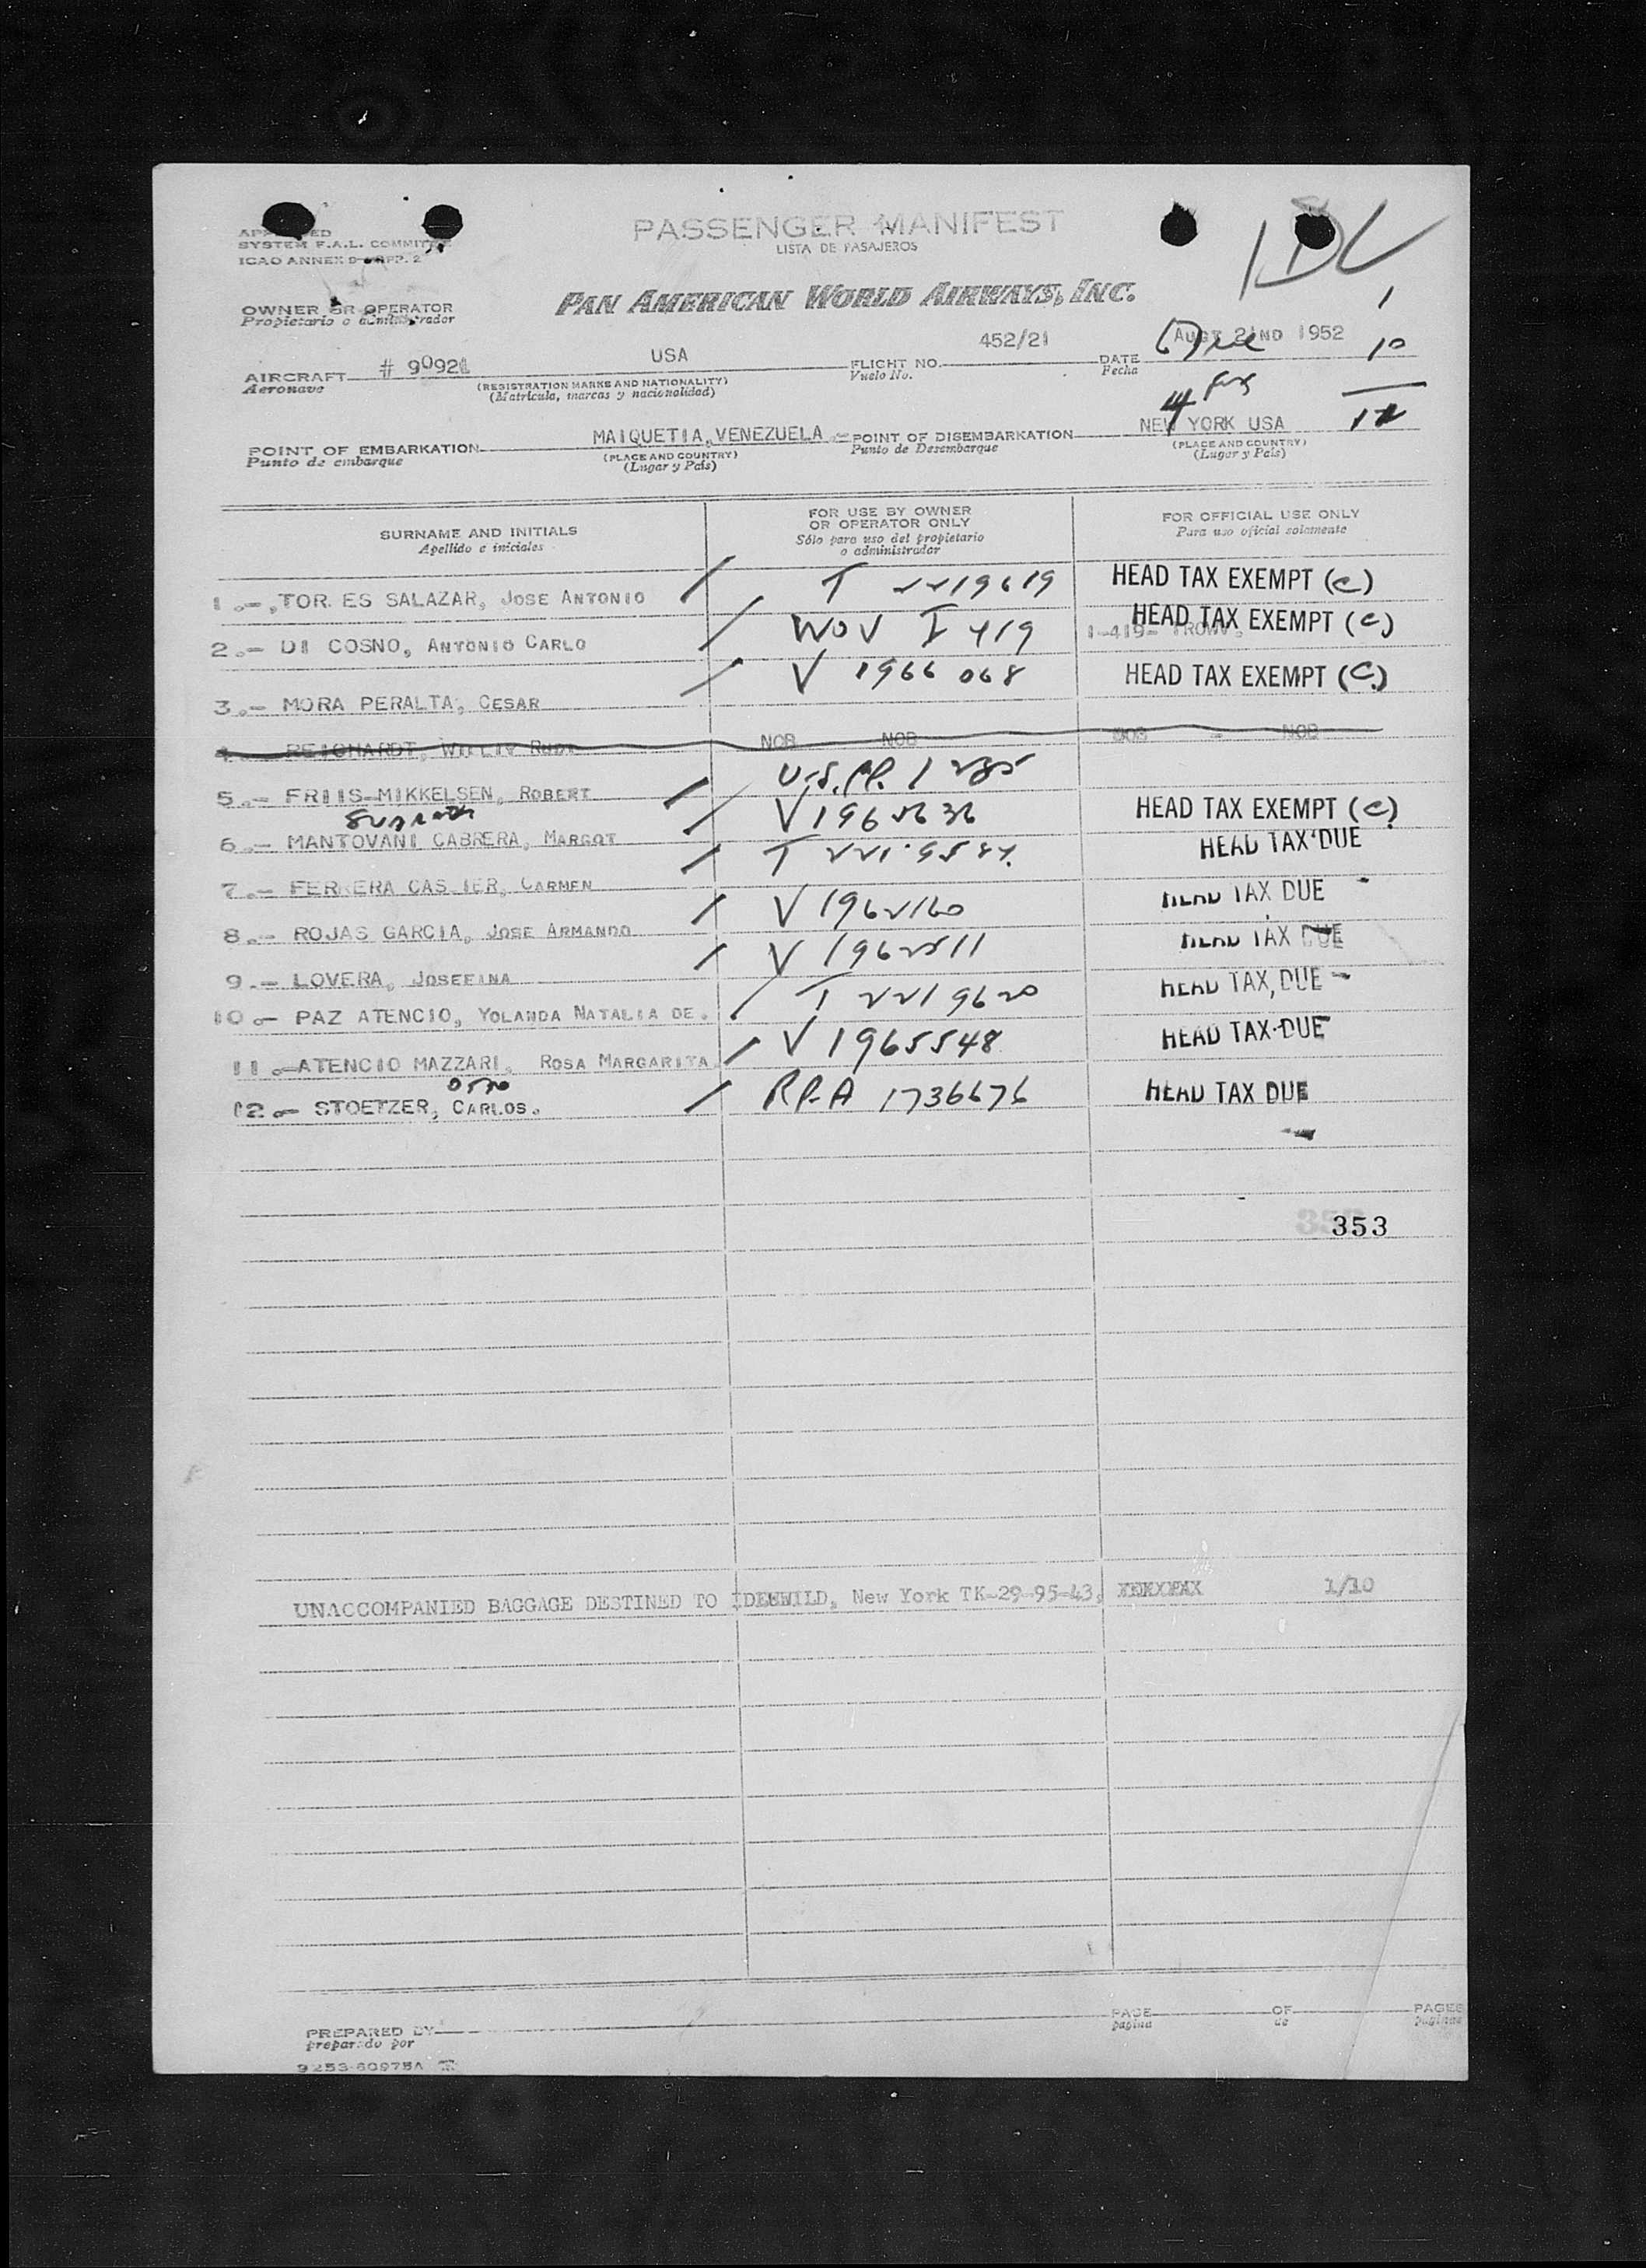 PASSENGER MANIFEST
LISTA DE PASAJEROS
SYSTEM F.A.L.
ICAO ANNEX 9
PAN AMERICAN WORLD AIRWAYS, INC.
OWNER OR OPERATOR
Propietario o administrador
1
AIRCRAFT # 90921 USA FLIGHT NO. 452/21 DATE AUGT 21ND 1952 10
Aeronave (REGISTRATION MARKS AND NATIONALITY) Vuelo No. Fecha
(Matrícula, marcas y nacionalidad)
POINT OF EMBARKATION MAIQUETIA, VENEZUELA.- POINT OF DISEMBARKATION NEW YORK USA
Punto de embarque (PLACE AND COUNTRY) Punto de Desembarque (PLACE AND COUNTRY)
(Lugar y País) (Lugar y País)
SURNAME AND INITIALS FOR USE BY OWNER OR OPERATOR ONLY FOR OFFICIAL USE ONLY
Apellido e iniciales Sólo para uso del propietario o administrador Para uso oficial solamente
1.- TOR ES SALAZAR, JOSE ANTONIO / T 2219619 HEAD TAX EXEMPT (C)
2.- DI COSNO, ANTONIO CARLO / WOV I 419 1-419- HEAD TAX EXEMPT (C)
3.- MORA PERALTA, CESAR / V 1966068 HEAD TAX EXEMPT (C)
4.- REICHARDT, NOB NOB NOB - NOB
5.- FRIIS-MIKKELSEN, ROBERT / U.S.PP. 1285
6.- MANTOVANI CABRERA, MARGOT / V 1962636 HEAD TAX EXEMPT (C)
7.- FERRERA CAS IER, CARMEN / T HEAD TAX DUE
8.- ROJAS GARCIA, JOSE ARMANDO / V 1962160 HEAD TAX DUE
9.- LOVERA, JOSEFINA / V 1962511 HEAD TAX DUE
10.- PAZ ATENCIO, YOLANDA NATALIA DE. / T 2219620 HEAD TAX DUE
11.- ATENCIO MAZZARI, ROSA MARGARITA / V 1965548 HEAD TAX DUE
OTTO
12.- STOETZER, CARLOS. / RP-A 1736676 HEAD TAX DUE
353
UNACCOMPANIED BAGGAGE DESTINED TO IDLEWILD, New York TK-29-95-43, 1/10
PREPARED BY PAGE OF PAGES
preparado por página de páginas
9253-60975A